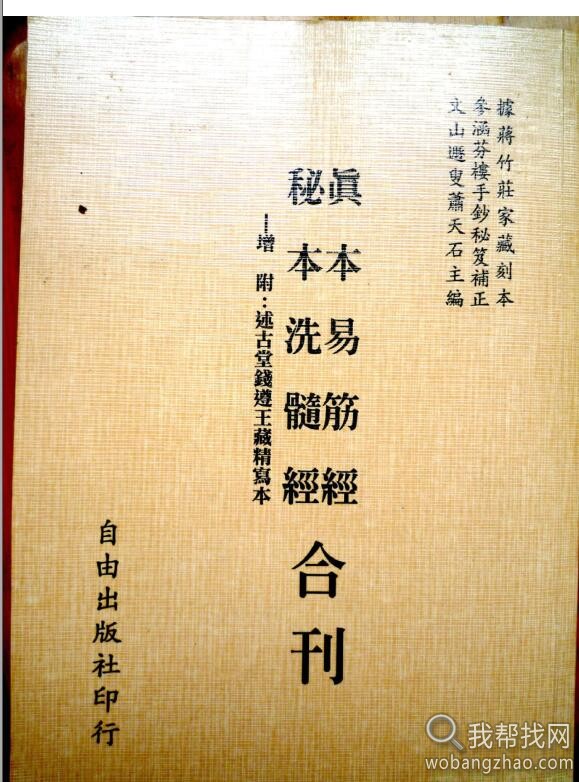 據蔣竹莊家藏刻本
參涵芬樓手鈔秘笈補正
文山遯叟蕭天石主編
眞本易筋經
秘本洗髓經
合刊
—增附：述古堂錢遵王藏精寫本
自由出版社印行
我帮找网
wobangzhao.com